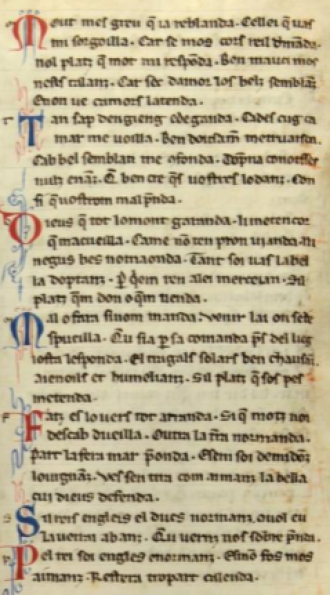 Mout mes greu q̃ ia reblanda. Cellei q̃ uas
mi sorgoilla. Car se mos cors reil dmãda.
nol platz q̃ mot mi respõda. Ben mauci mos
nesis talanz. Car sec damor los bels semblãz
E non ue camors latenda.
Tan sap dengieng e de ganda. Cades cug ca
mar me uoilla. Ben doussam me truaisen.
Cab bel semblan me cofonda. Dopna
nuilz enaz. Q̃ ben cre q̃s uostres lo danz. Con
si q̃ uostrom mal p̃nda.
Dieus q̃ tot lo mont garanda. li meten cor
q̃ macueilla. Came nõ ten pron uianda. Ni
negus bes no maonda. Tant soi uas la bel
la doptanz. Per qem ren a lei merceian. Sil
platz q̃m don o q̃m uenda.
Mal o fara sinom manda. Venir lai on se de
spueilla. Qu sia per sa comanda pres del lieg
iosta lesponda. El tragals sotlars ben chausãz
a ienoils et humelianz. Sil platz q̃ sos pes
me tenda.
Fatz es lo uers tot a randa. Si q̃ motz noi
descab dueilla. Outra la tr̃a normanda.
part la fera mar p̃onda. E sem soi de midõz
loingnãz. Ves sen tira com aiman la bella
cui dieus defenda.
Sil reis engleis el ducs normanz o uol eu
la ueirai abanz. Qu iuerns nos sobre p̃nda.
Pel rei soi engles e normanz. E si no fos mos
aimanz. Restera tro part calenda.